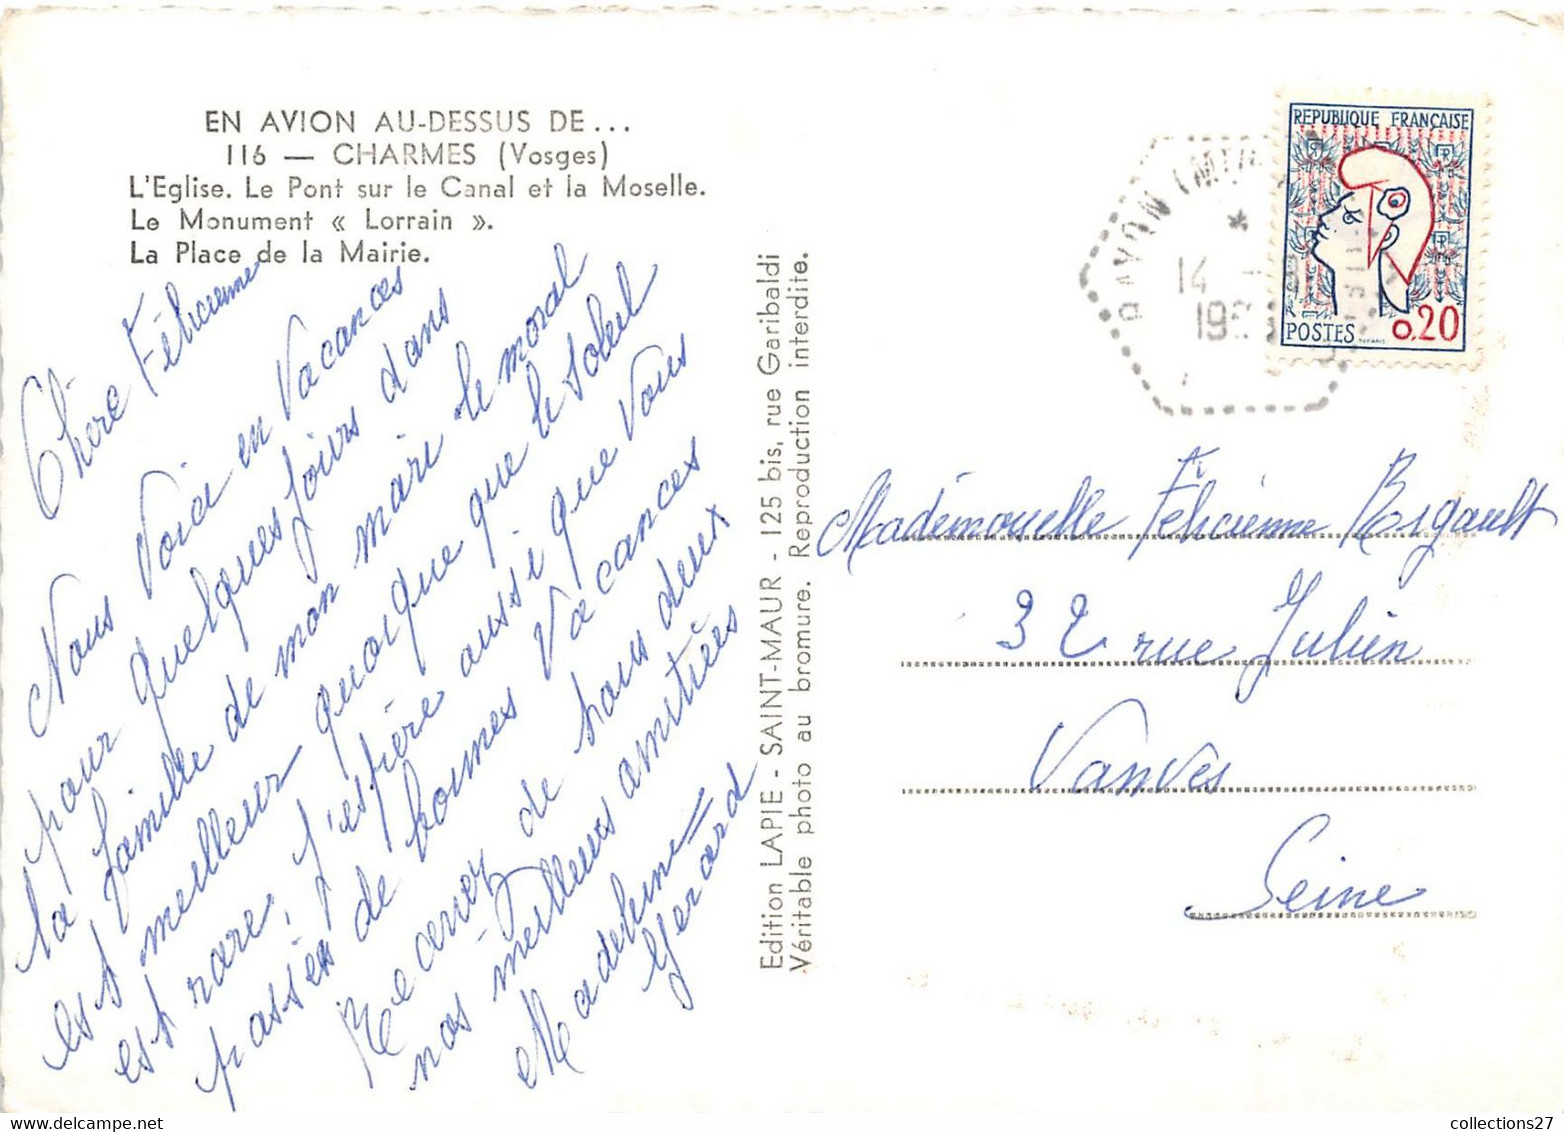 EN AVION AU-DESSUS DE...
116 — CHARMES (Vosges)
L'Eglise. Le Pont sur le Canal et la Moselle.
Le Monument « Lorrain ».
La Place de la Mairie.
Chère Félicienne
Nous Voici en Vacances
pour quelques jours dans
la famille de mon mari le moral
est meilleur quoique que le soleil
est rare, j'espère aussi que Vous
passéz de bonnes Vacances
Recevez de nous deux
nos meilleurs amitiées
Madeleine
Gérard
Edition LAPIE - SAINT-MAUR - 125 bis, rue Garibaldi
Véritable photo au bromure. Reproduction interdite.
14
REPUBLIQUE FRANÇAISE
POSTES 0,20
Mademoiselle Félicienne Rigault
32 rue Julien
Vanves
Seine
collections27